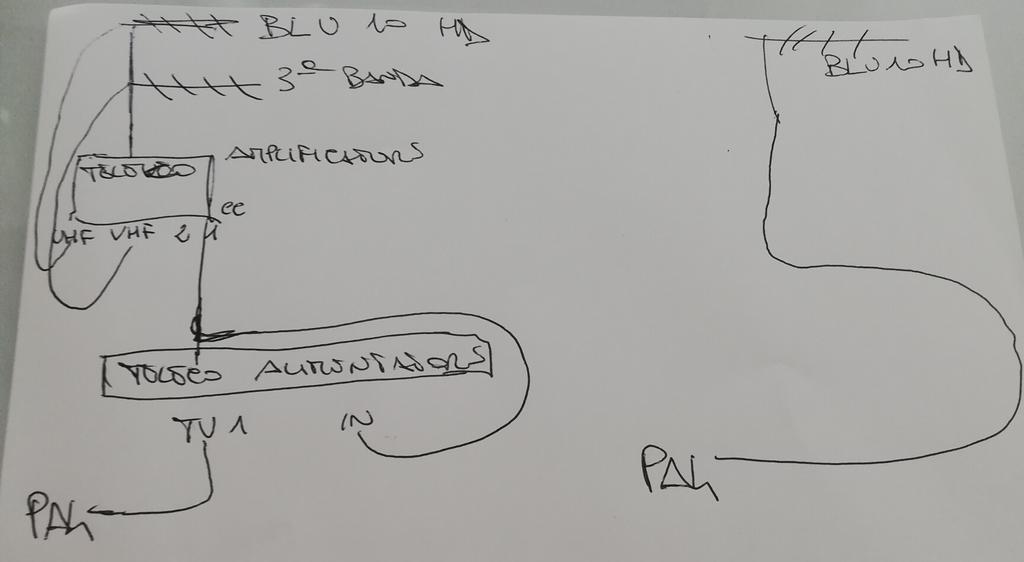 BLU 10 HD
3ª BANDA
AMPLIFICATORE
TELECO
CC
VHF VHF 2 1
TELECO ALIMENTATORE
TV 1
IN
PAL
BLU 10 HD
PAL